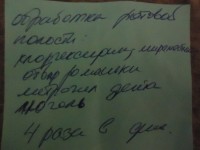 обработка ротовой
полости:
хлоргексидин, мирамистин
отвар ромашки
метрогил дента
люголь
4 раза в день.